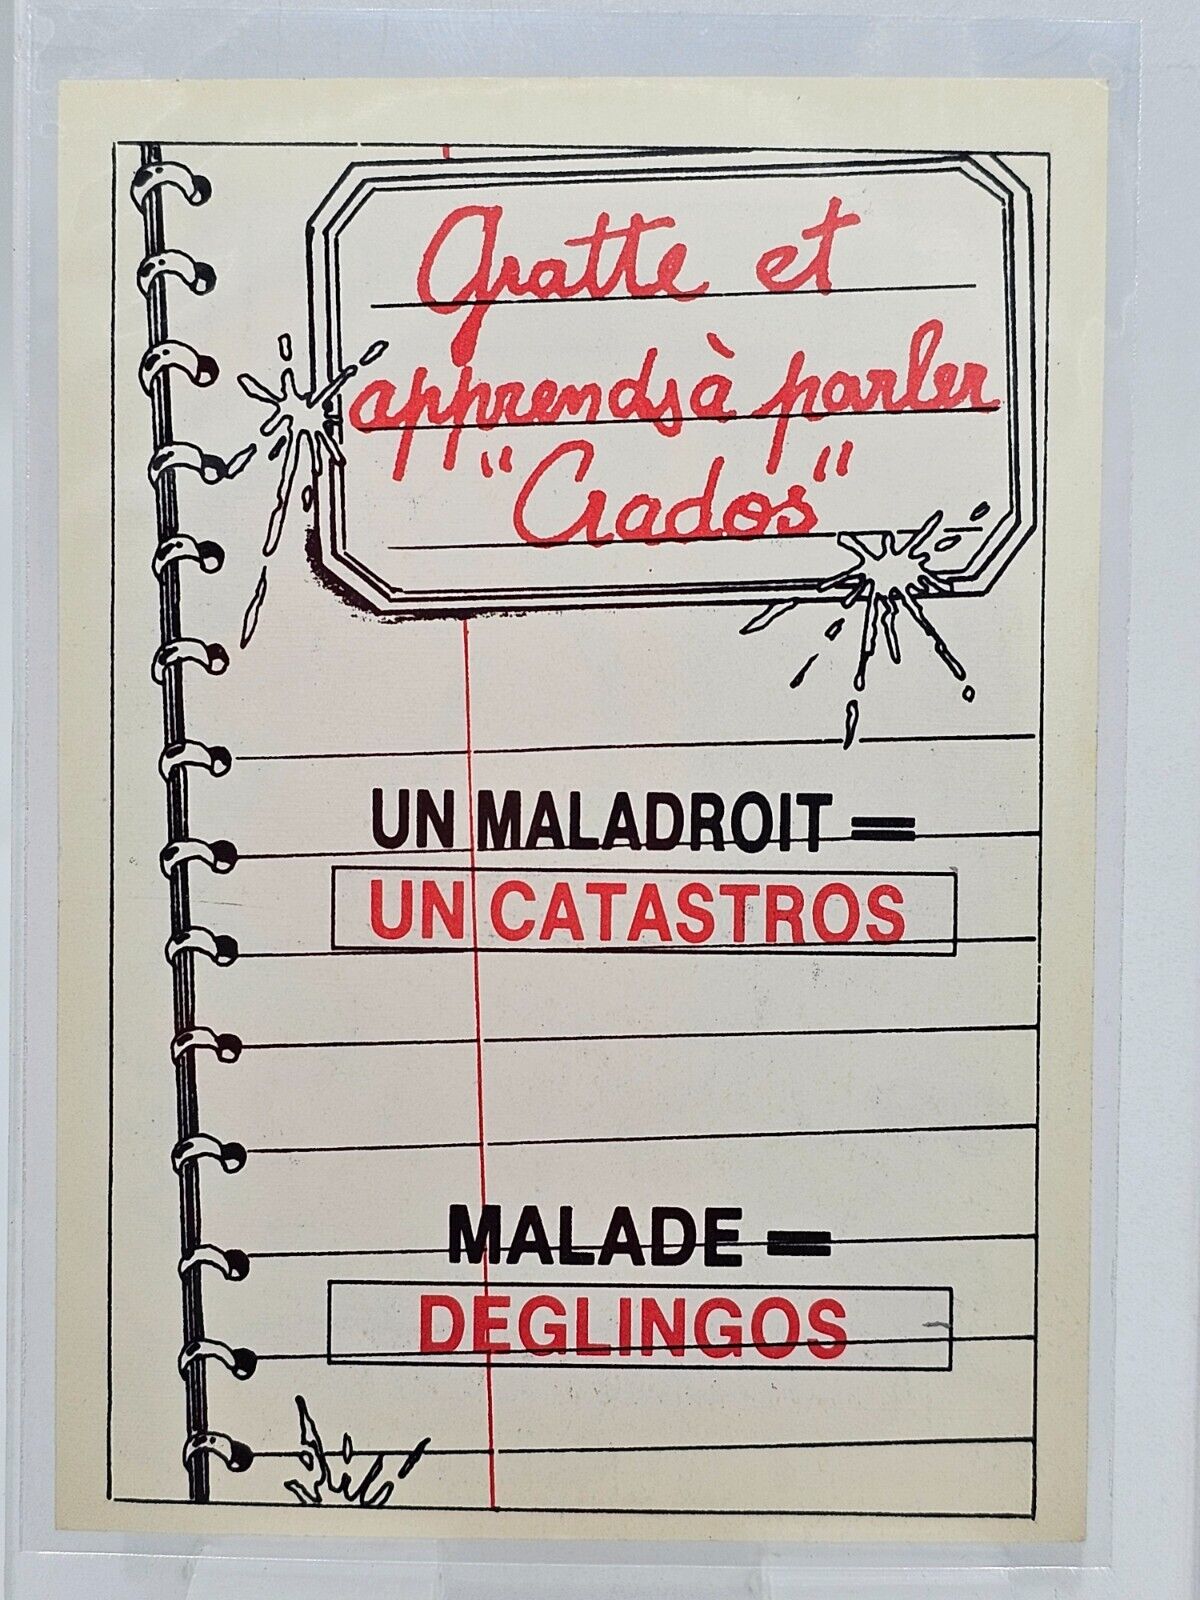 Gratte et
apprends à parler
"Crados"
UN MALADROIT =
UN CATASTROS
MALADE =
DEGLINGOS